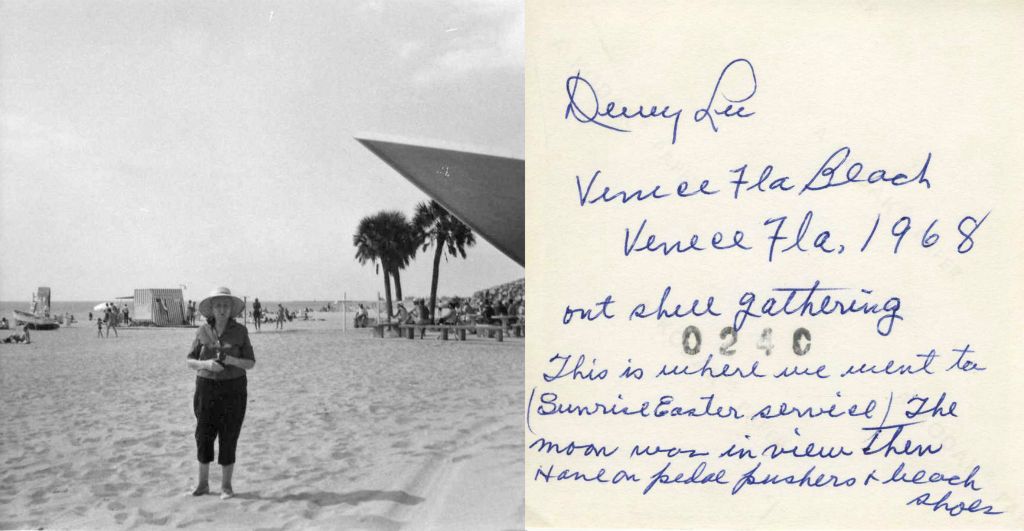 Dewey Lee
Venice Fla Beach
Venice Fla, 1968
out shell gathering
0240
This is where we went to
(Sunrise Easter service) The
moon was in view then
Have on pedal pushers & beach
shoes